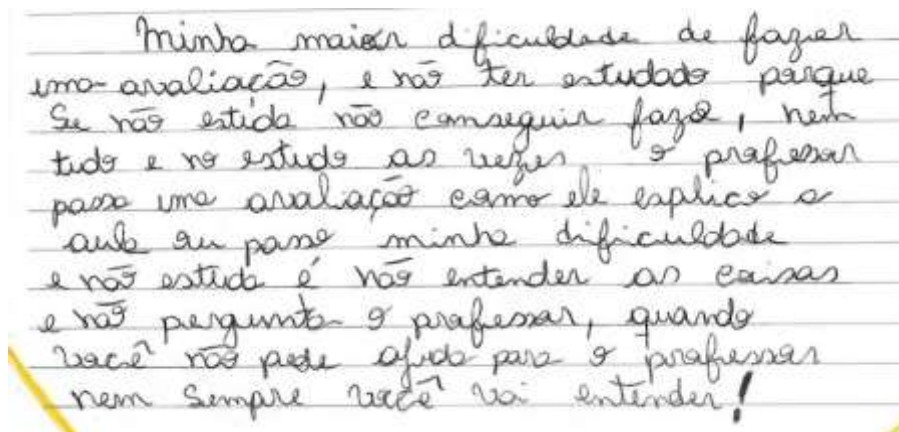 Minha maior dificuldade de fazer
uma avaliação, e não ter estudado porque
Se não estida não conseguir faze, nem
tudo e no estudo as vezes o professor
passa uma avaliação como ele esplico a
aula ou passe minha dificuldade
e não estuda é não entender as coisas
e não pergunta o professor, quando
você não pede ajuda para o professor
nem sempre você vai entender!